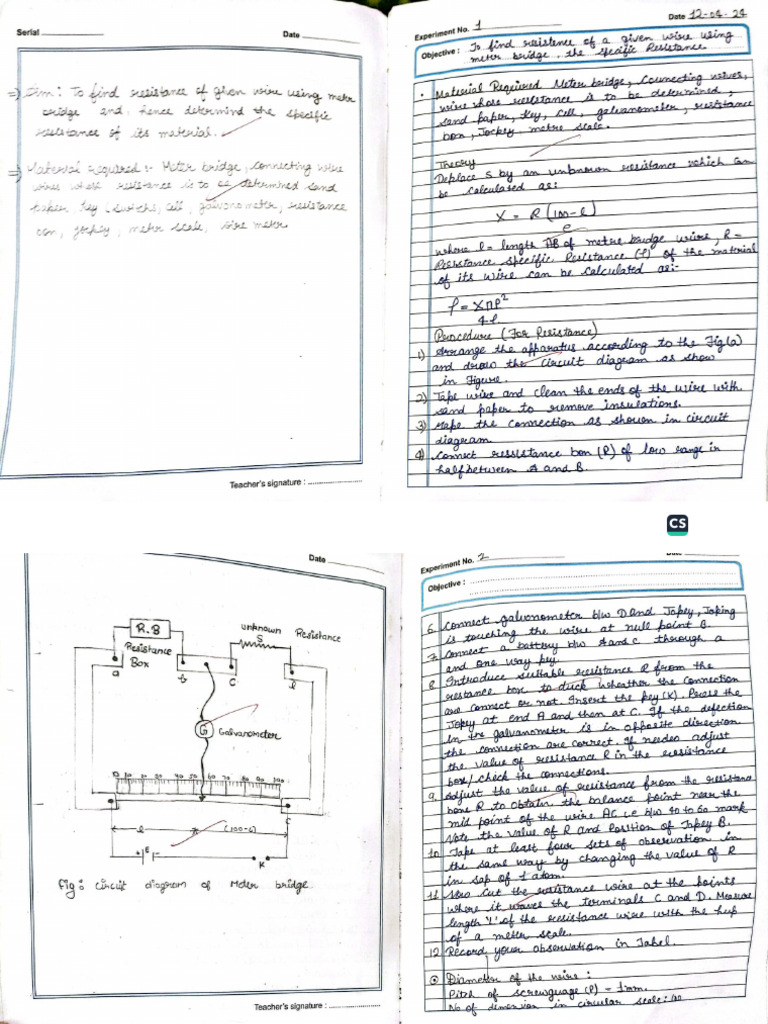 Serial
Date
=) Aim: To find resistance of given wire using metr
bridge and, hence determind the specific
resistance of its material.
=) Material required :- Meter bridge, connecting wire
wires whose resistance is to be determined sand
paper, Key (switchs, cell, galvanometer, resistance
con, jockey, metr scale, wire metr
Teacher's signature :
Experiment No. 1
Date 12-04-24
Objective : To find resistence of a given wire using
meter bridge. the specific Resistance
• Material Required Meter bridge, Connecting wires,
wire whose resistance is to be determined,
sand paper, Key, Cell, galvanometer, resistance
box, Jockey, metre scale.
Theory
Deplace S by an unknown resistance which can
be calculated as:
X = R (100-l)
l
where l = length AB of metre bridge wire, R =
Resistance Specific Resistance (ρ) of the material
of its wire can be calculated as:-
ρ = XπD²
4l
Procedure (For Resistance)
1) Arrange the apparatus according to the Fig (a)
and draw the circuit diagram as show
in Figure.
2) Tape wire and clean the ends of the wire with
sand paper to remove insulations.
3) Tape the connection as shown in circuit
diagram
4) Connect ressistance box (R) of low range in
half between A and B.
CS
Date
R.B
Resistance
Box
unknown
S
Resistance
a
b
C
l
G
Galvanometer
10 20 30 40 50 60 70 80 90 100
C
l
(100-l)
E
K
Fig: Circuit diagram of Meter bridge
Teacher's signature :
Experiment No. 2
Date
Objective :
6. Connect galvanometer b/w D and Jokey, Joking
is touching the wire at null point B.
7. Connect a battery b/w A and C through a
and one way key.
8 Introduce suitable resistance R from the
restance box to check wheather the connection
are connect or not. Insert the key (K). Press the
Jokey at end A and then at C. If the defection
in the galvanometer is in opposite direction
the connection are correct. If needes adjust
the value of resistance R in the resistance
box/check the connections.
9. Adjust the value of resistance from the resistana
bone R to obtain the balance point near the
mid point of the wire AC i.e b/w 40 to 60 mark
Note the value of R and Position of Jokey B.
10. Take at least four sets of observation in
the same way by changing the value of R
in sap of 1 atom.
11. Now Cut the resistance wire at the points
where it waves the terminals C and D. Measure
length 'l' of the resistance wire with the help
of a meter scale.
12 Record your observation in Tabel.
Diameter of the wire :
Pitch of screwguage (P) - 1mm.
No of dimension in circular scale: